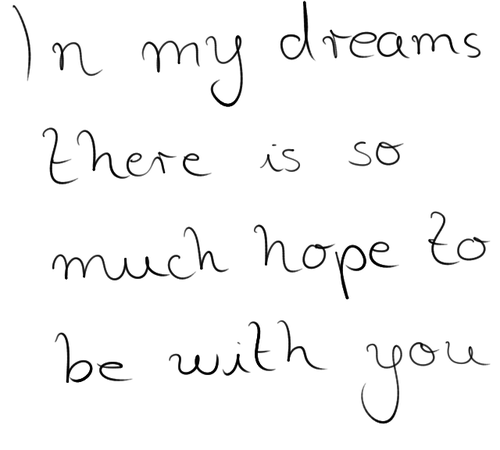 In my dreams
there is so
much hope to
be with you